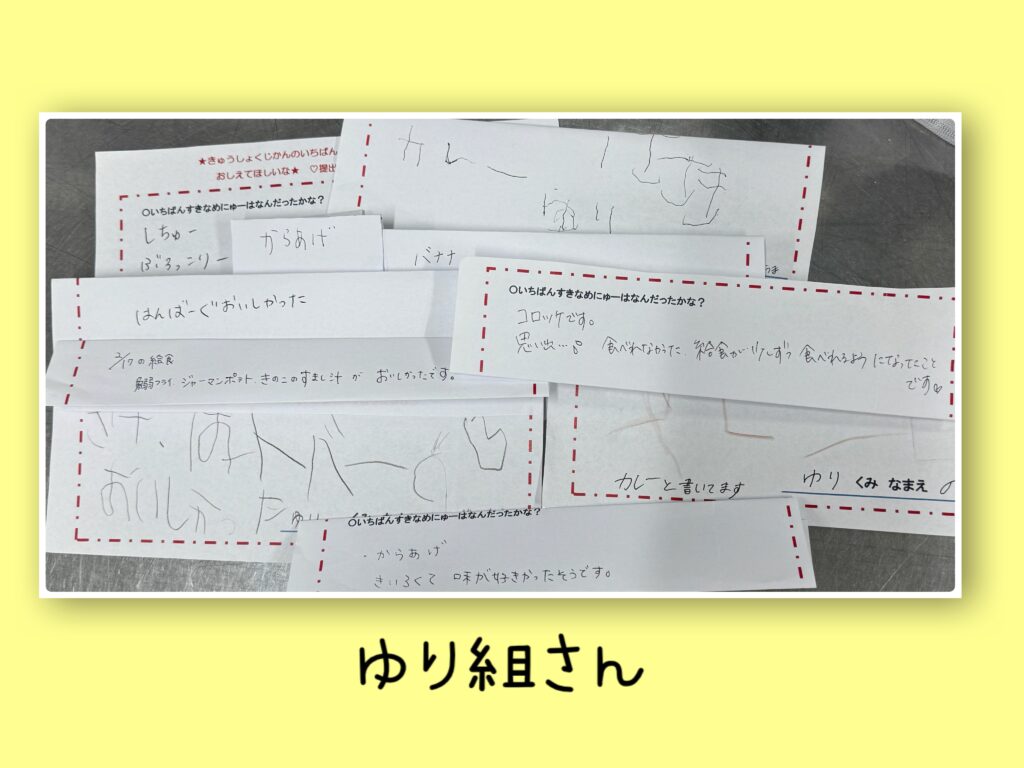 ★きゅうしょくじかんのいちばん
おしえてほしいな★ ♡提出
〇いちばんすきなめにゅーはなんだったかな？
しちゅー
ぶろっこりー
からあげ
カレー
バナナ
はんばーぐおいしかった
2/17の給食
鰯フライ ジャーマンポテト、きのこのすまし汁 が おいしかったです。
〇いちばんすきなめにゅーはなんだったかな？
コロッケです。
思い出…。 食べれなかった 給食が少しずつ 食べれるようになったこと
です
はんバーぐ
おいしかった
カレーと書いてます
ゆり くみ なまえ
〇いちばんすきなめにゅーはなんだったかな？
・からあげ
きいろくて 味が好きかったそうです。
ゆり組さん